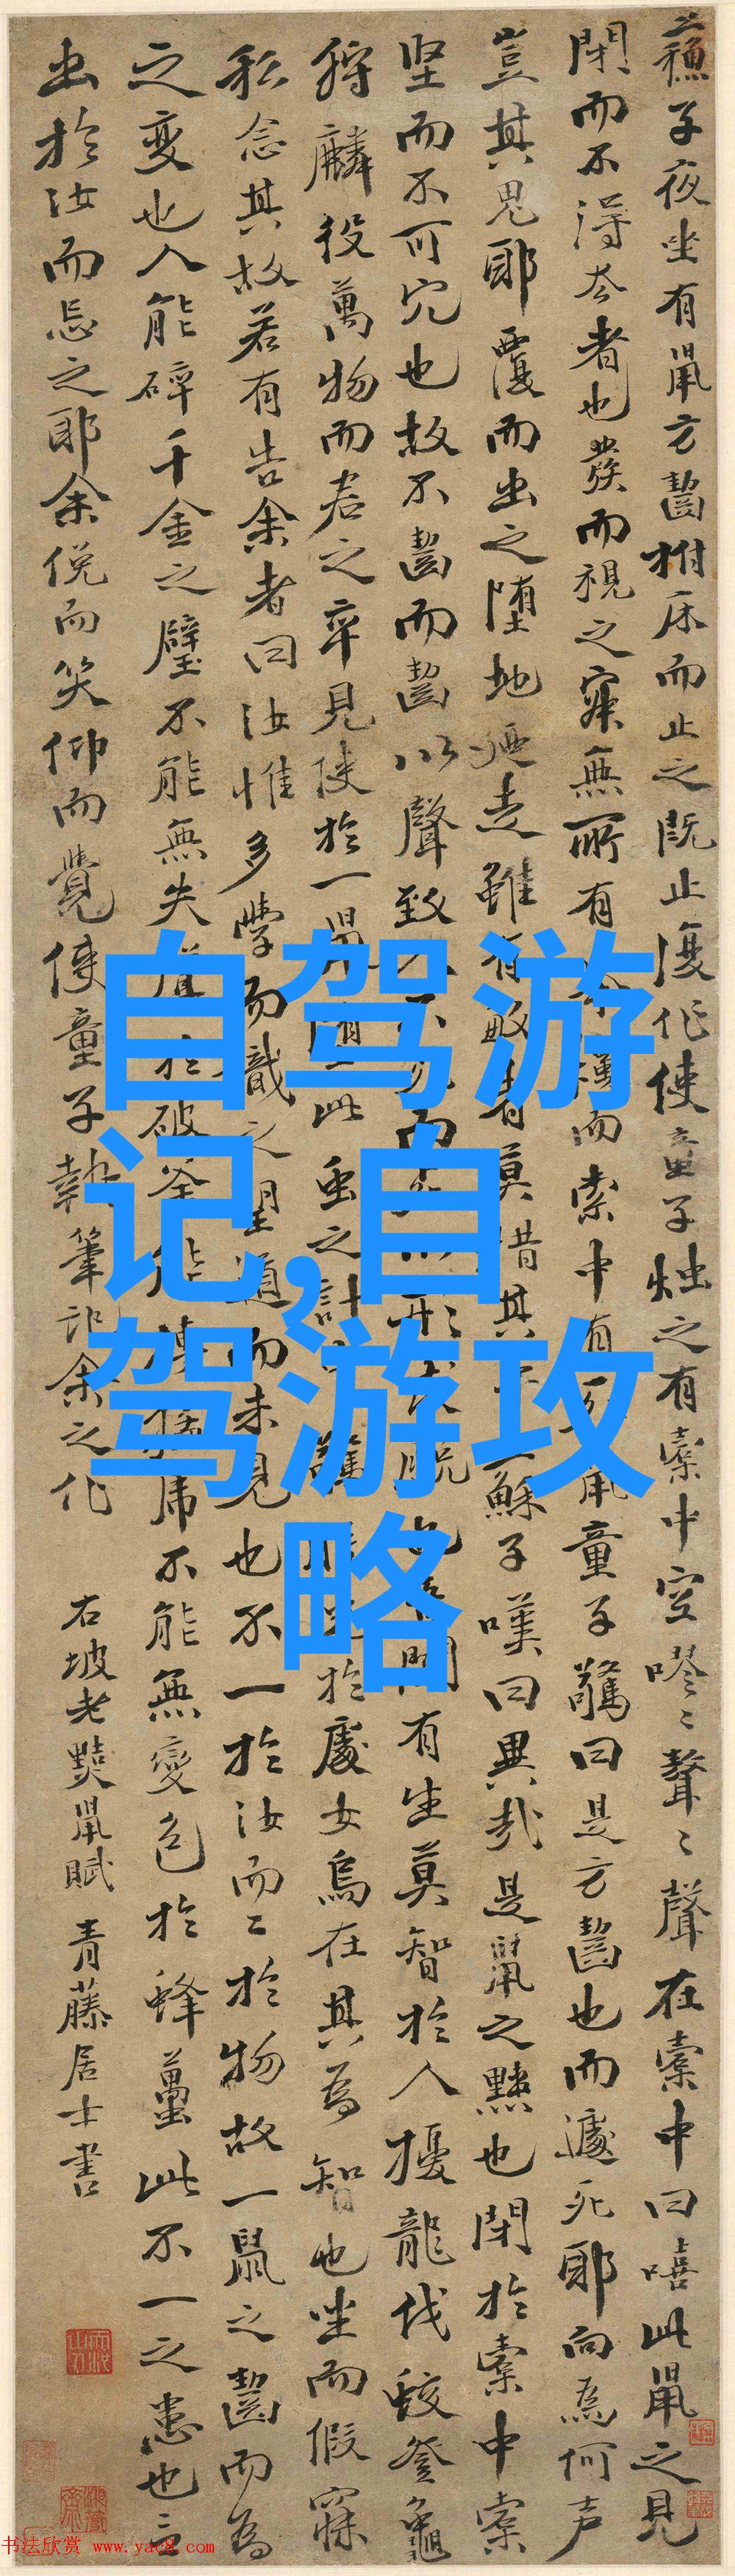 蘇子夜坐有鼠方齧拊床而止之既止復作使童子燭之有橐中空嘐〻聱〻聲在橐中曰嘻此鼠之見
閉而不得去者也發而視之寂無所有而索中有死鼠童子驚曰是方齧也而遽死耶向為何声
豈其鬼耶覆而出之墮地廼走雖有敏者莫措其蘇子嘆曰異哉是鼠之黠也閉於橐中橐
坚而不可穴也故不齧而齧以聲致而形脱也有生莫智於人擾龍伐蛟登龜
狩麟役萬物而君之卒見使於一鼠此虫之計於處女烏在其為智也坐而假寐
私念其故若有告余者曰汝惟多學而識之望道而未見也不一於汝而二於物故一鼠之齧而為
之変也人能碎千金之璧不能無失聲於破釜能虎不能無變色於蜂蠆此不一之患也言
出於汝而忘之耶余俛而笑仰而覺使童子執筆記余之作
右坡老黠鼠賦 青藤居士書
自驾游
记,自
驾游攻
略
书法欣赏 www.yac8.com